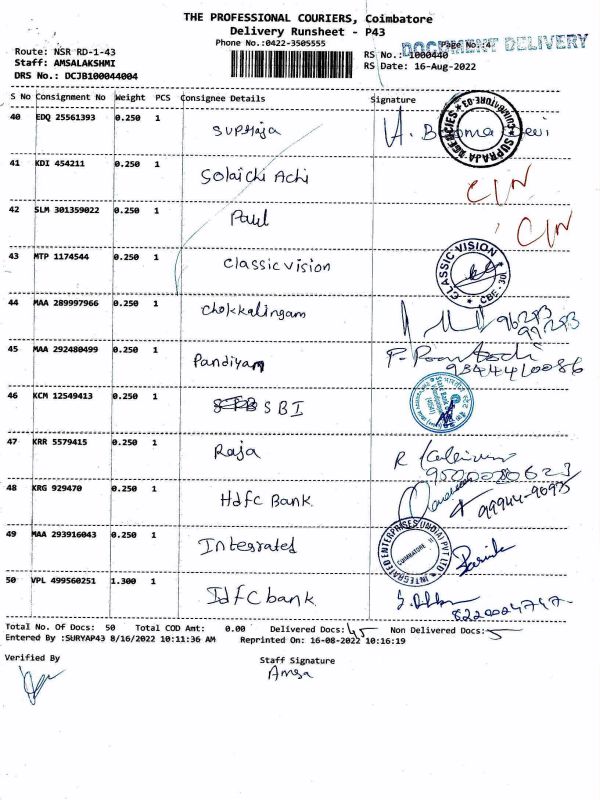 THE PROFESSIONAL COURIERS, Coimbatore
Delivery Runsheet - P43
Phone No.:0422-3505555
Page No.:4
DOCUMENT DELIVERY
Route: NSR RD-1-43
RS No.: 1000440
Staff: AMSALAKSHMI
RS Date: 16-Aug-2022
DRS No.: DCJB100044004
S No Consignment No Weight PCS Consignee Details Signature
40 EDQ 25561393 0.250 1 Supraja
SUPRAJA AGENCIES
41 KDI 454211 0.250 1 Solaichi Achi CIN
42 SLM 301359022 0.250 1 Paul CIN
43 MTP 1174544 0.250 1 Classic vision
CLASSIC VISION CBE - 30
44 MAA 289997966 0.250 1 Chokkalingam 96283
99283
45 MAA 292480499 0.250 1 Pandiyan
9344410086
46 KCM 12549413 0.250 1 SBI
47 KRR 5579415 0.250 1 Raja R
48 KRG 929470 0.250 1 Hdfc Bank
49 MAA 293916043 0.250 1 Integrated
INTEGRATED ENTERPRISES (INDIA) PVT LTD COIMBATORE
50 VPL 499560251 1.300 1 Idfc bank
Total No. Of Docs: 50 Total COD Amt: 0.00 Delivered Docs: 45 Non Delivered Docs: 5
Entered By :SURYAP43 8/16/2022 10:11:36 AM Reprinted On: 16-08-2022 10:16:19
Verified By
Staff Signature
Amsa